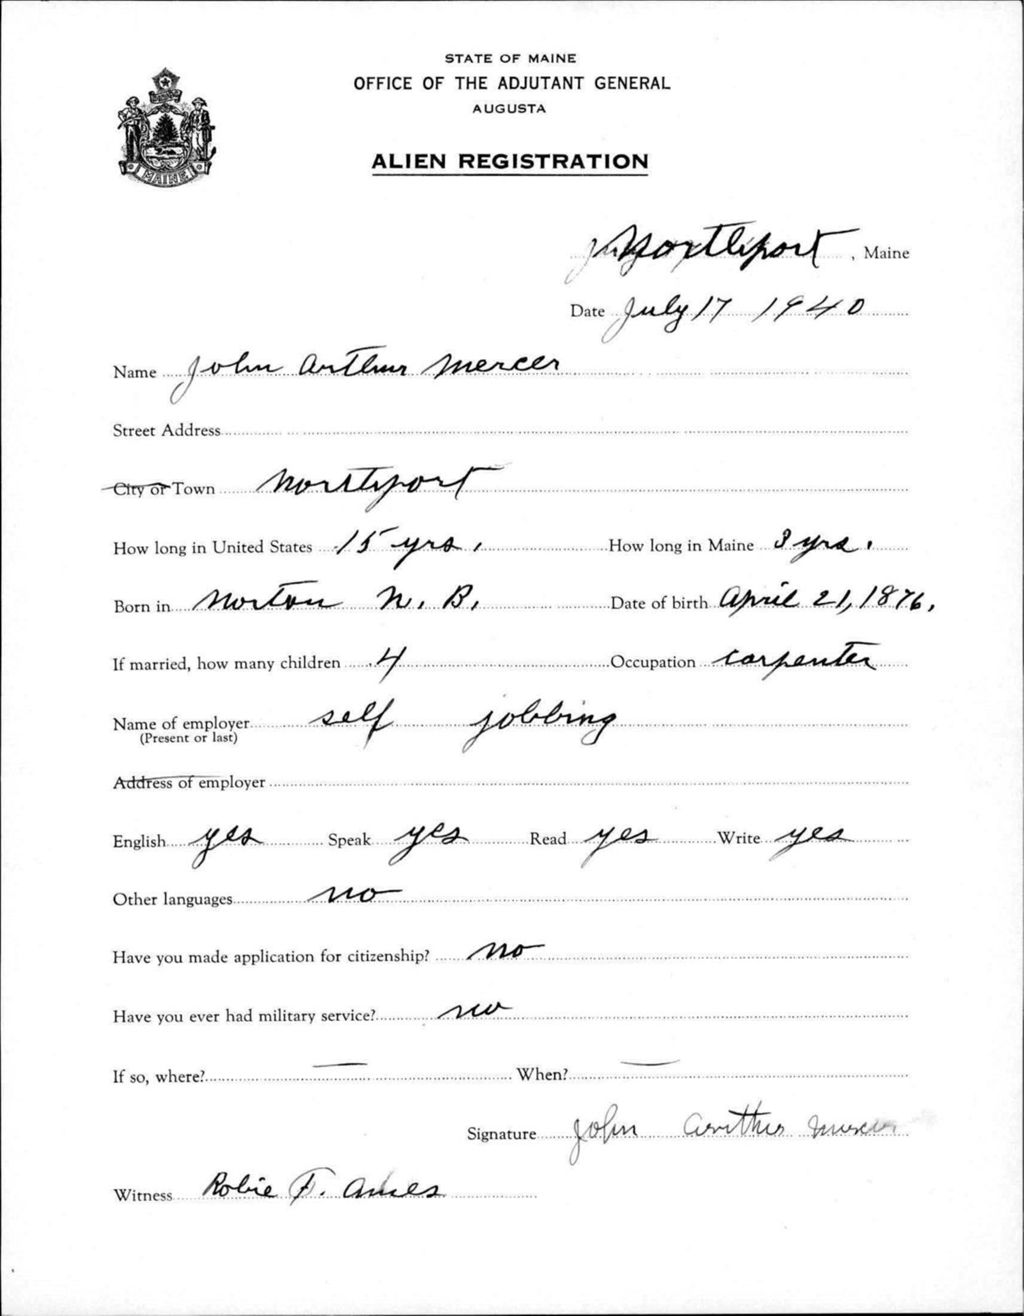 STATE OF MAINE
OFFICE OF THE ADJUTANT GENERAL
AUGUSTA
ALIEN REGISTRATION
MAINE
Northport, Maine
Date July 17 1940
Name John Arthur Mercer
Street Address
City or Town Northport
How long in United States 15 yrs. How long in Maine 3 yrs.
Born in Norton N. B. Date of birth April 21, 1876.
If married, how many children 4 Occupation carpenter
Name of employer self jobbing
(Present or last)
Address of employer
English yes Speak yes Read yes Write yes
Other languages no
Have you made application for citizenship? no
Have you ever had military service? no
If so, where? — When? —
Signature John Arthur Mercer
Witness Robie F. Ames